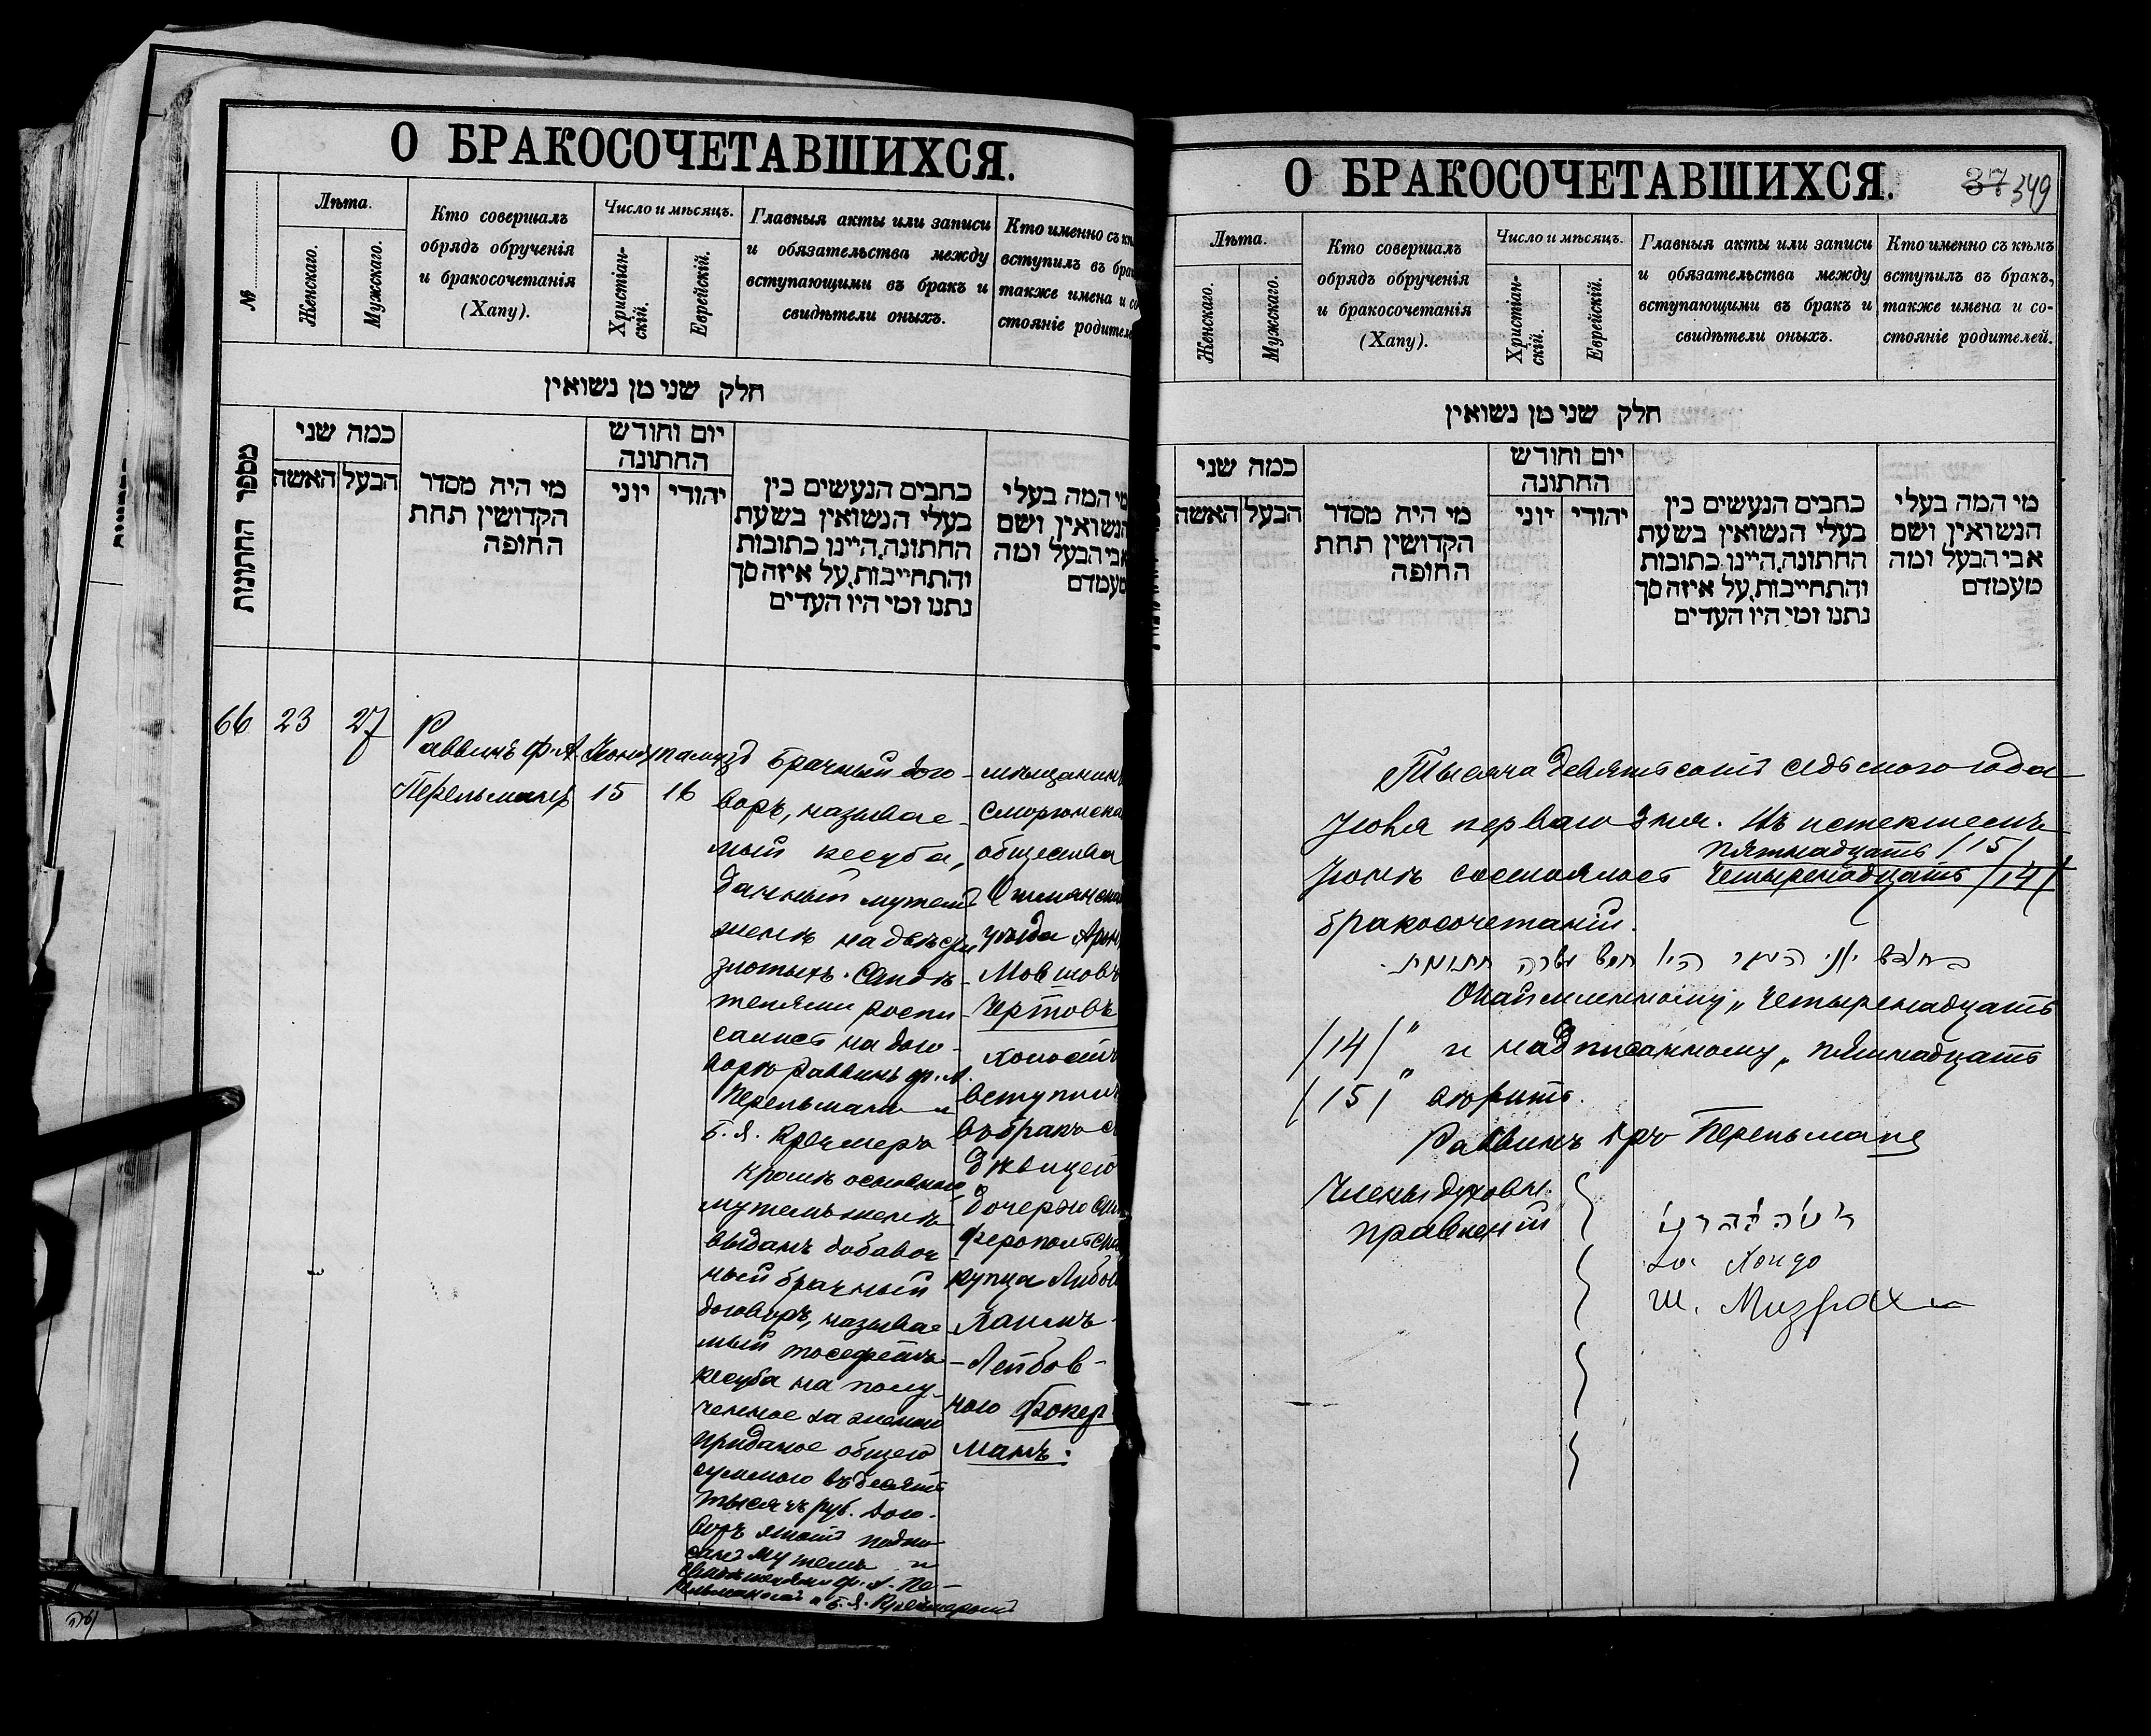 О БРАКОСОЧЕТАВШИХСЯ.
№
Лѣта.
Женскаго.
Мужскаго.
Кто совершалъ
обрядъ обрученія
и бракосочетанія
(Хапу).
Число и мѣсяцъ.
Христіан-
скій.
Еврейскій.
Главныя акты или записи
и обязательства между
вступающими въ бракъ и
свидѣтели оныхъ.
Кто именно съ
вступилъ въ
также имена и
стояніе
חלק שני מן נשואין
מספר החתונות
כמה שני
האשה
הבעל
מי היה מסדר
הקדושין תחת
החופה
יום וחודש
החתונה
יוני
יהודי
כתבים הנעשים בין
בעלי הנשואין בשעת
החתונה, היינו כתובות
והתחייבות, על איזה סך
נתנו ומי היו העדים
מי המה בעלי
הנשואין, ושם
אבי הבעל ומה
מעמדם
66
23
27
Раввинъ Ф. А.
Перельманъ
15
16
Брачный дого-
воръ, называе-
мый кесуба,
данный мужемъ
женѣ на двѣсти
злотыхъ. Свидѣ-
телями распи-
сались на дого-
ворѣ раввинъ Ф. А.
Перельманъ и
Б. Я. Кремеръ
Кромѣ основного
мужемъ женѣ
выданъ добавоч
ный брачный
договоръ, называе
мый тосефетъ
кесуба на полу-
ченное за женою
приданое общею
суммою въ десять
тысячъ руб. Дого-
воръ этотъ подпи-
санъ мужемъ и
свидѣтелями Ф. А. Пе-
рельманомъ и Б. Я.
мѣщанинъ
Сморгонска
общества
Ошмянска
уѣзда Арон
Мовшовъ
Чертовъ
холостъ
вступилъ
въ бракъ с
дѣвицею
дочерью Сим
феропольск
купца Любою
Хаимъ-
-Лейбов-
ною Фокер
манъ:
О БРАКОСОЧЕТАВШИХСЯ.
37 349
Лѣта.
Женскаго.
Мужскаго.
Кто совершалъ
обрядъ обрученія
и бракосочетанія
(Хапу).
Число и мѣсяцъ.
Христіан-
скій.
Еврейскій.
Главныя акты или записи
и обязательства между
вступающими въ бракъ и
свидѣтели оныхъ.
Кто именно съ кѣмъ
вступилъ въ бракъ,
также имена и со-
стояніе родителей.
חלק שני מן נשואין
כמה שני
האשה
הבעל
מי היה מסדר
הקדושין תחת
החופה
יום וחודש
החתונה
יוני
יהודי
כתבים הנעשים בין
בעלי הנשואין בשעת
החתונה, היינו כתובות
והתחייבות, על איזה סך
נתנו ומי היו העדים
מי המה בעלי
הנשואין, ושם
אבי הבעל ומה
מעמדם
Тысяча девятьсотъ седьмого года
Іюля перваго дня. Въ истекшемъ
пятнадцать /15/
Іюнѣ состоялось четырнадцать /14/
бракосочетаній.
четырнадцать
/14/" и надписанному "пятнадцать
/15/" вѣрить.
Раввинъ Перельманъ
Члены духовн.
правленій
Ш. Мизрахи